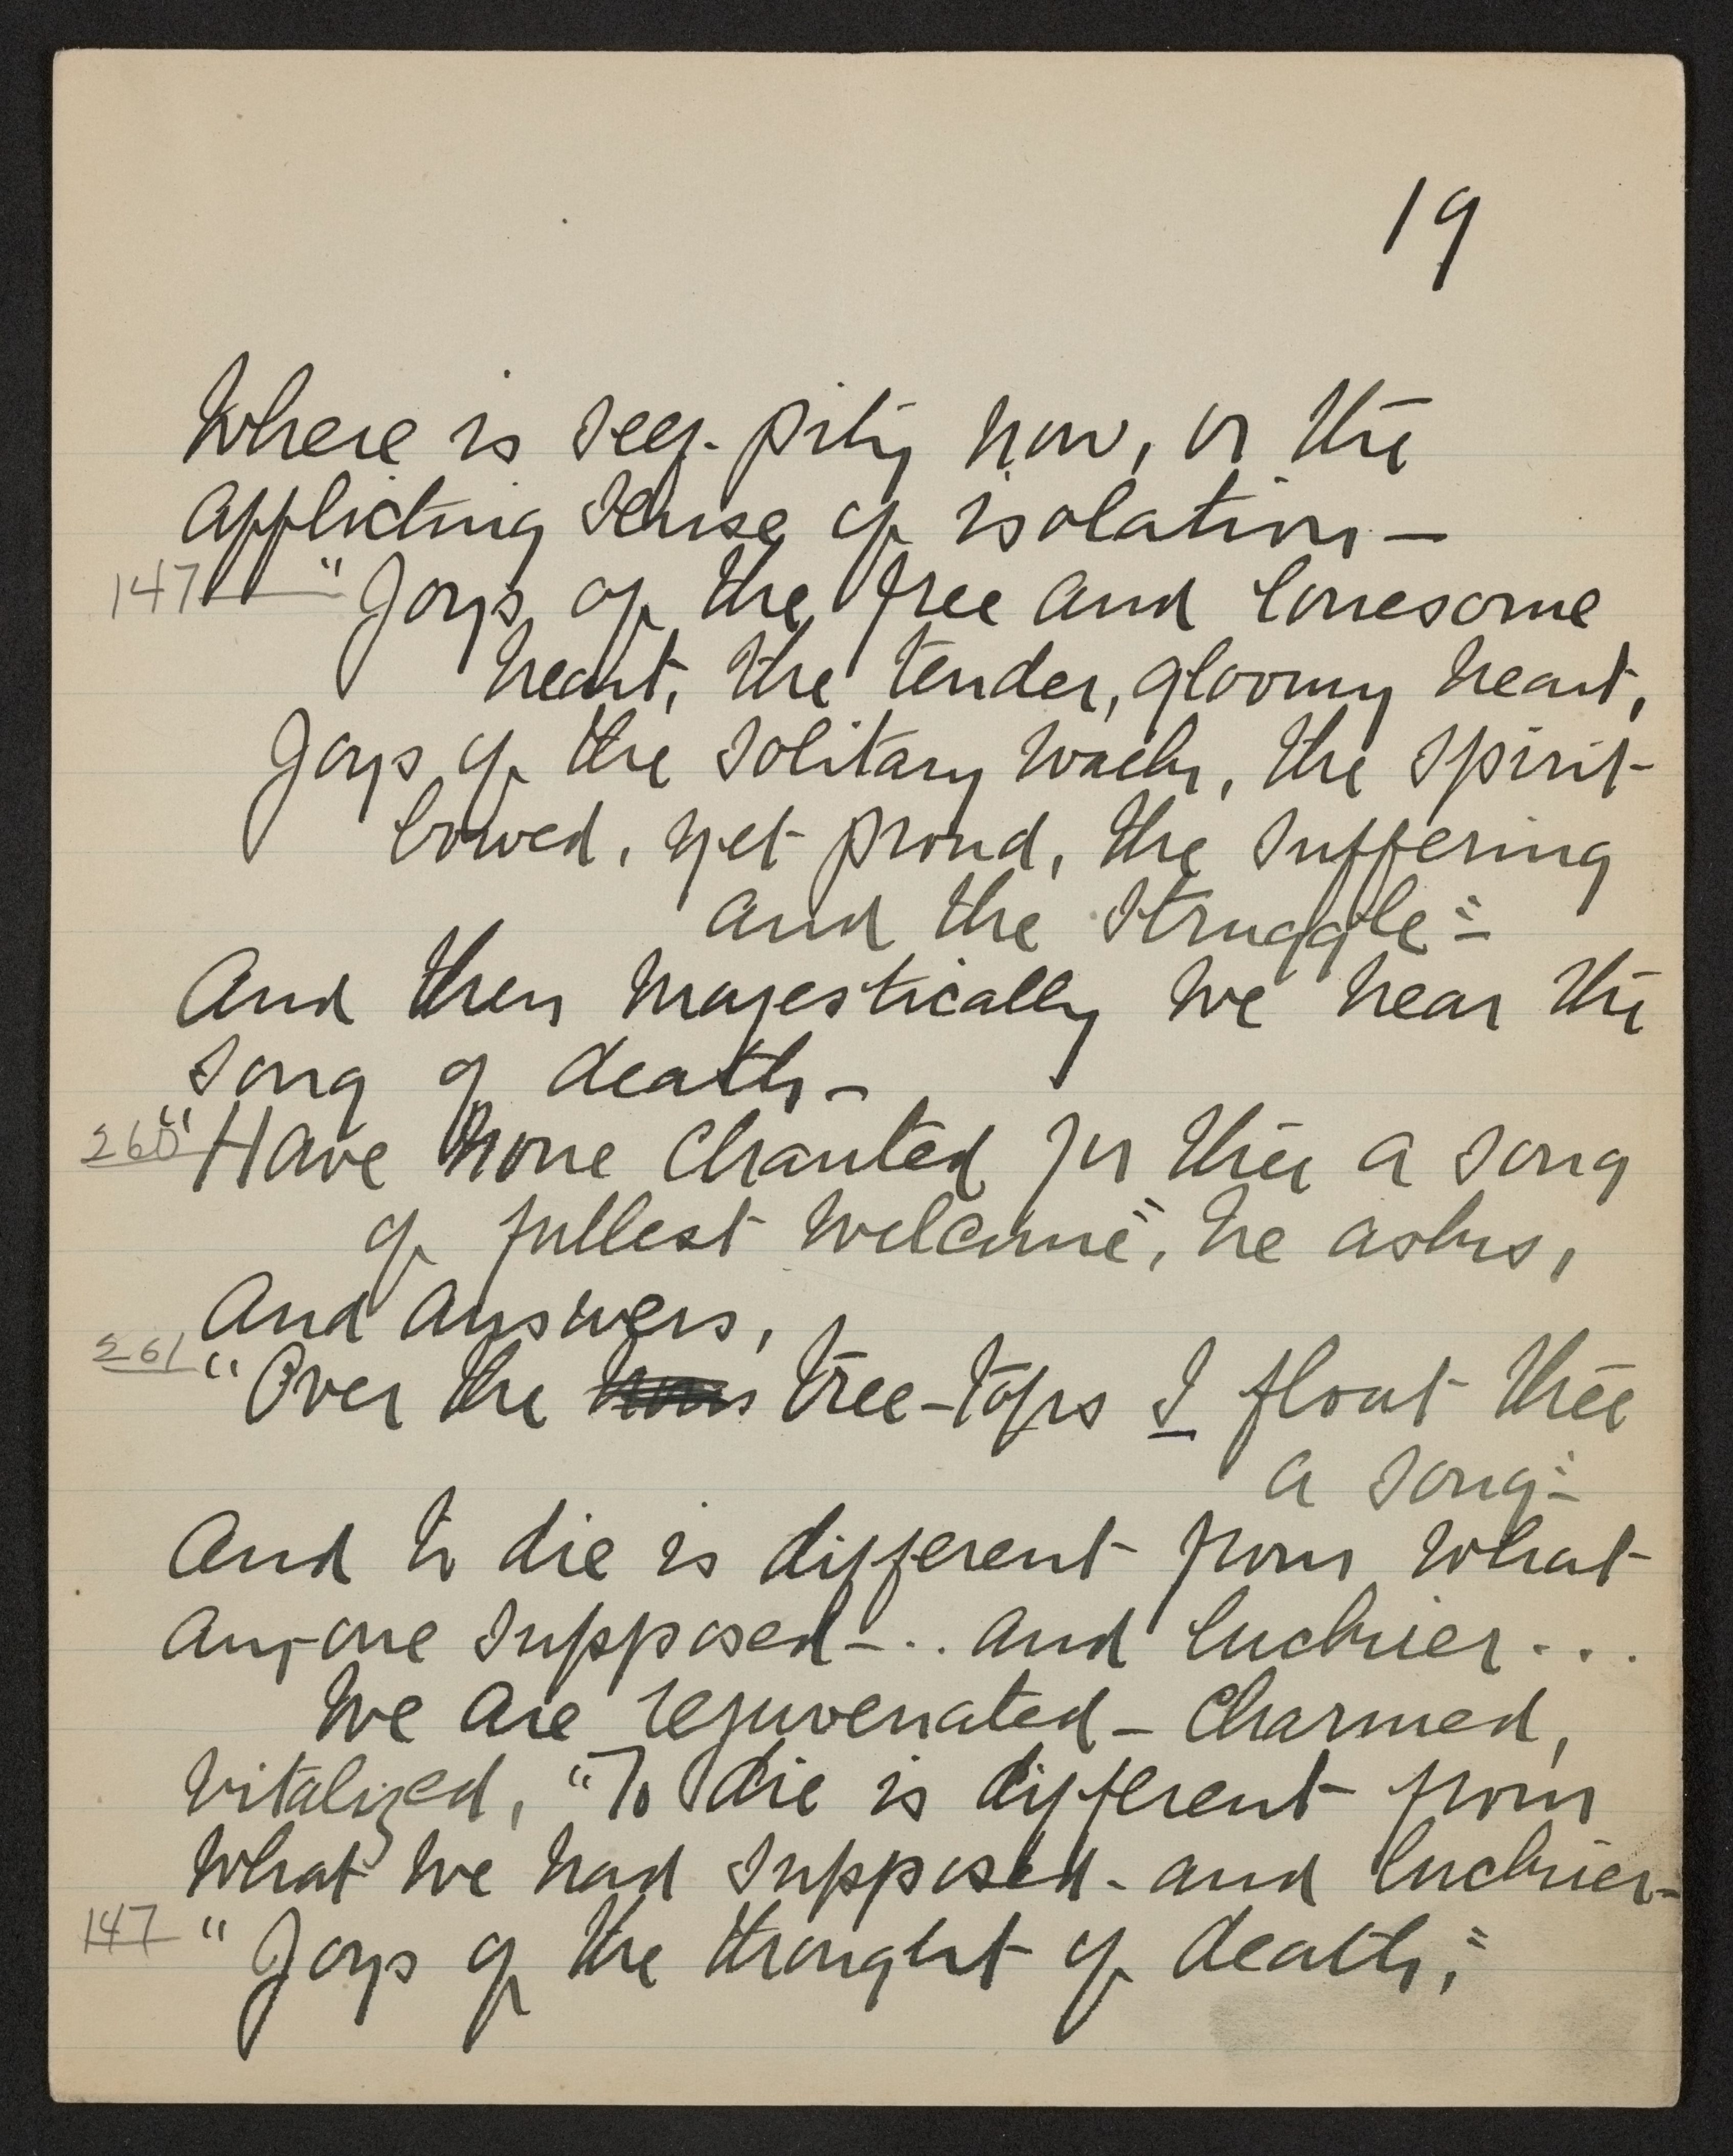 19
Where is self-pity now, or the
afflicting sense of isolation —
147 "Joys of the free and lonesome
heart, the tender, gloomy heart,
Joys of the solitary walk, the spirit
bowed, yet proud, the suffering
and the struggle" —
And then majestically we hear the
song of death —
260 "Have none chanted for thee a song
of fullest welcome", he asks,
And answers,
261 "Over the tree-tops I float thee
a song" —
And to die is different from what
any-one supposed — .. and luckier ...
We are rejuvenated — charmed,
vitalized, "To die is different from
what we had supposed - and luckier —
147 "Joys of the thought of death,"